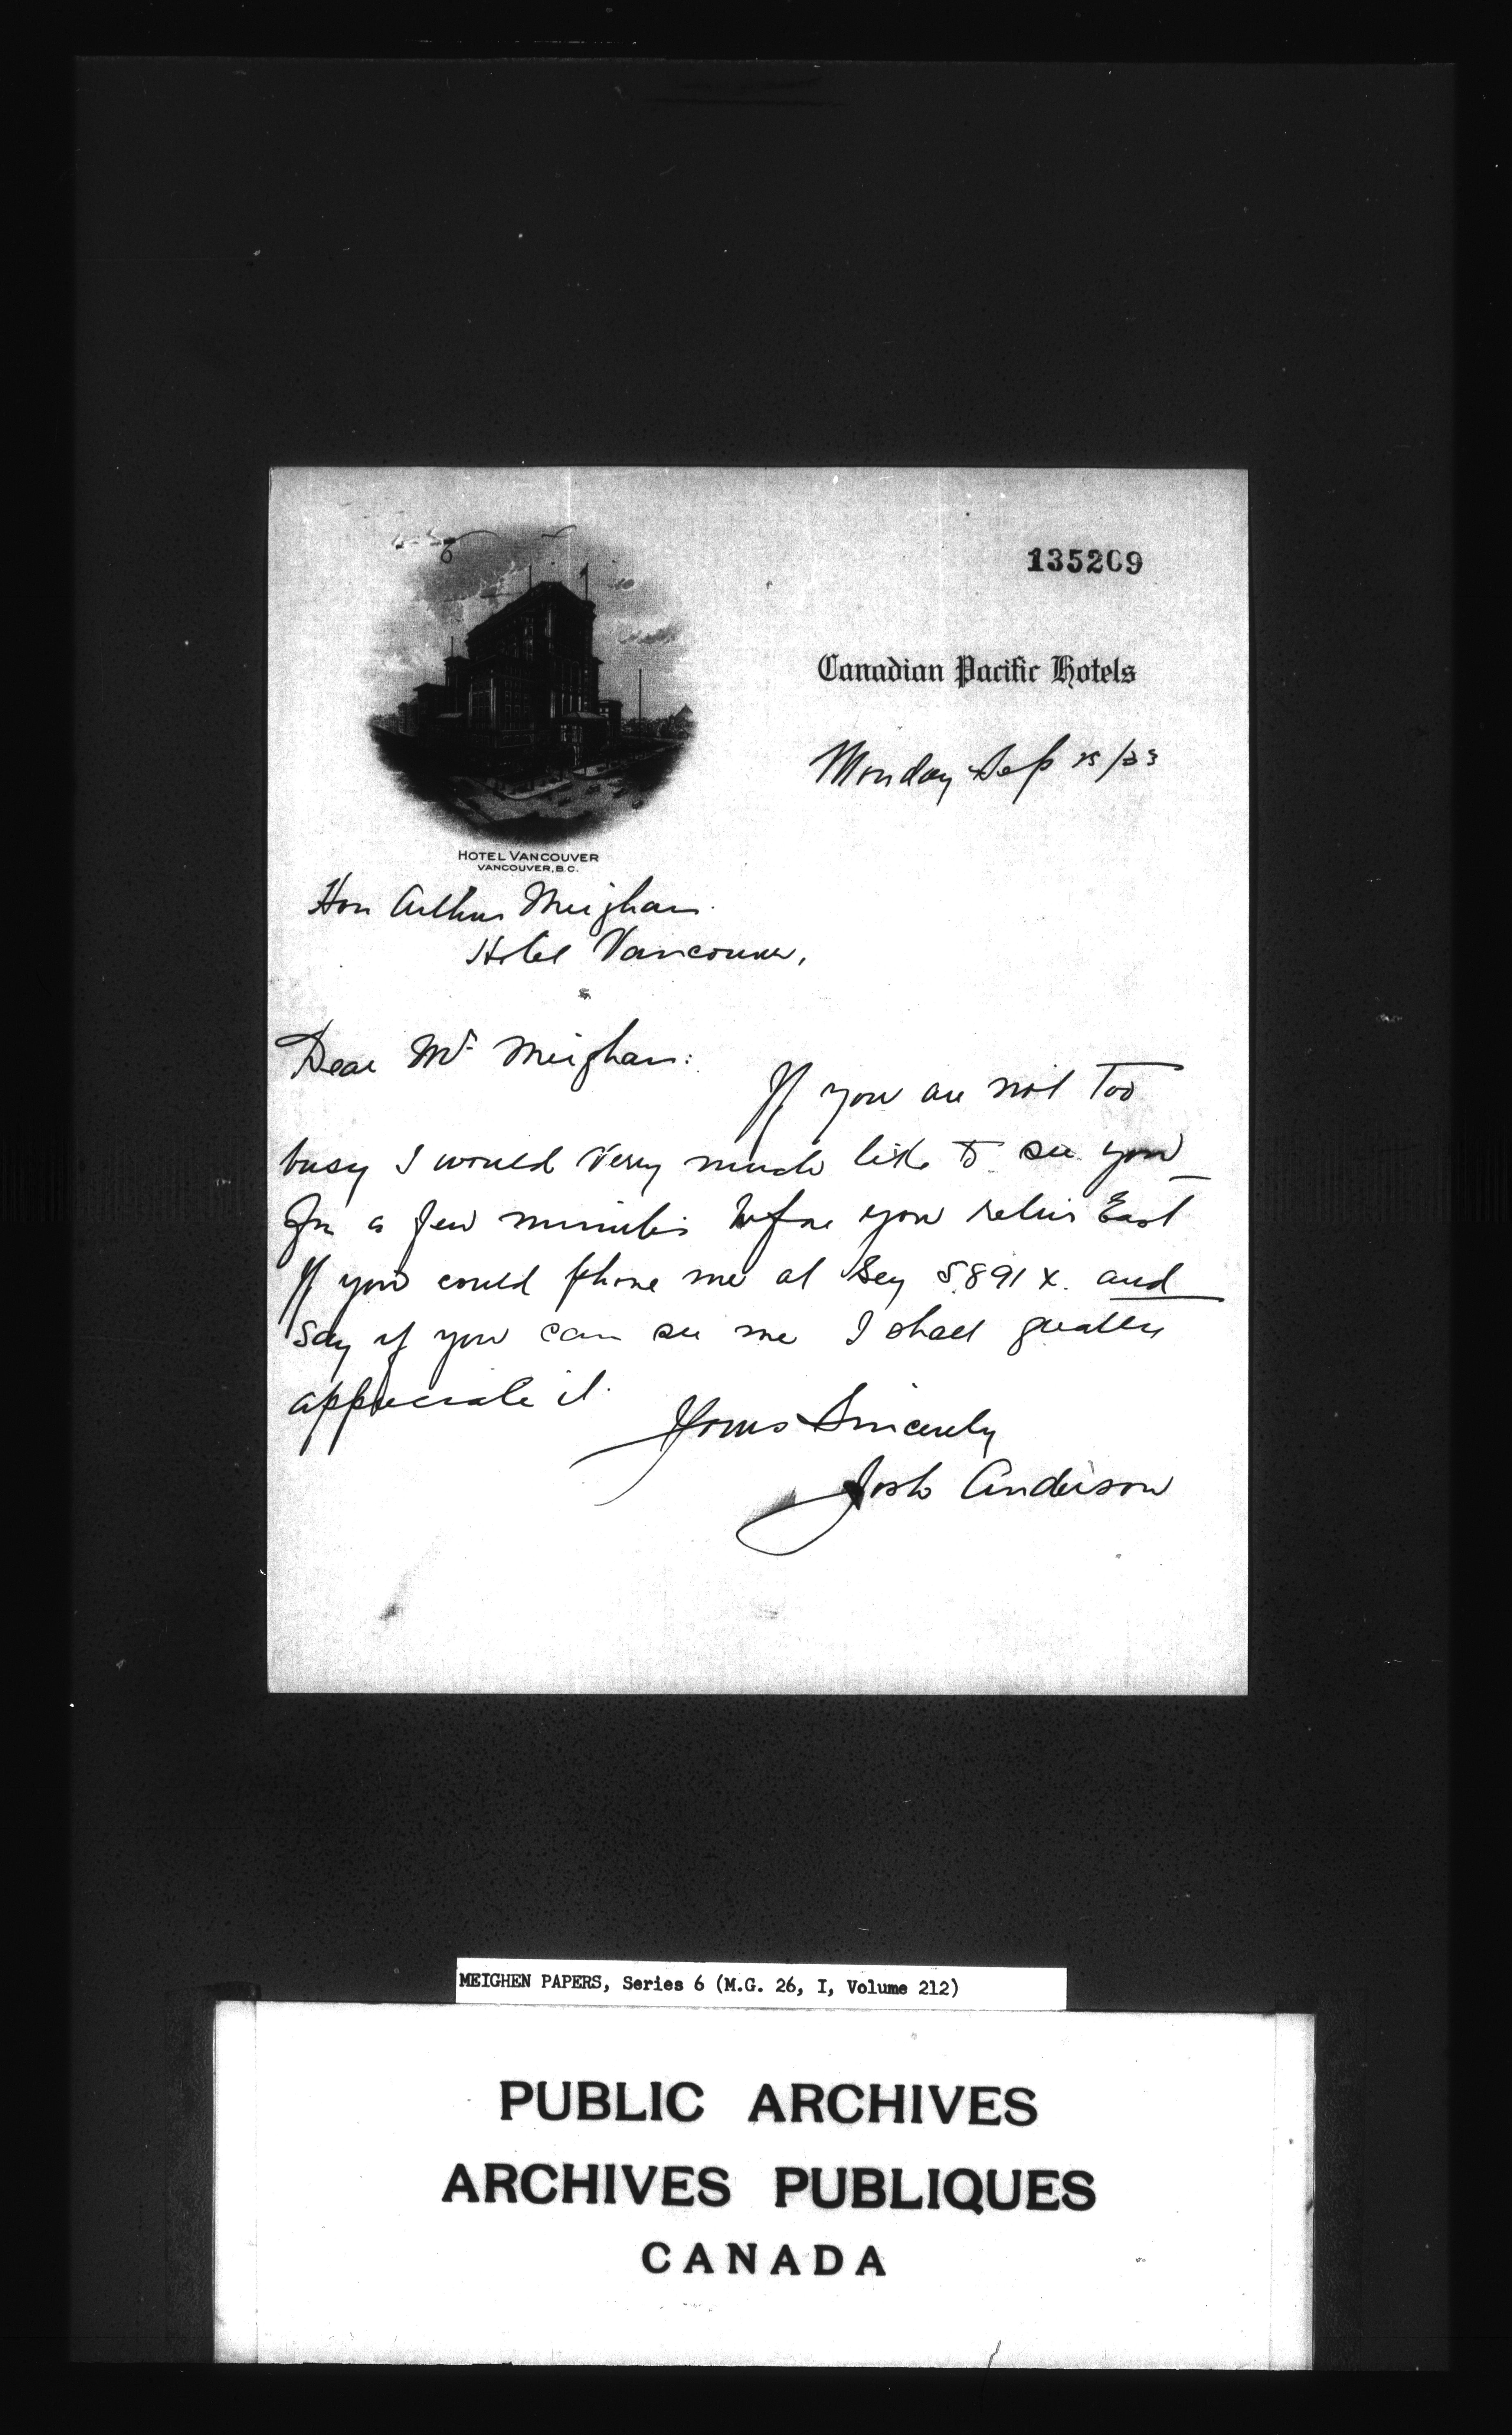 135209
Canadian Pacific Hotels
Monday Sep /23
HOTEL VANCOUVER
VANCOUVER, B.C.
Hon Arthur Meighan.
Hotel Vancouver,
Dear Mr Meighan:
If you are not too
busy I would very much like to see you
for a few minutes before you return East
If you could phone me at Sey 5891 X. and
say if you can see me I shall greatly
appreciate it.
Yours Sincerely
Josh Anderson
MEIGHEN PAPERS, Series 6 (M.G. 26, I, Volume 212)
PUBLIC ARCHIVES
ARCHIVES PUBLIQUES
CANADA